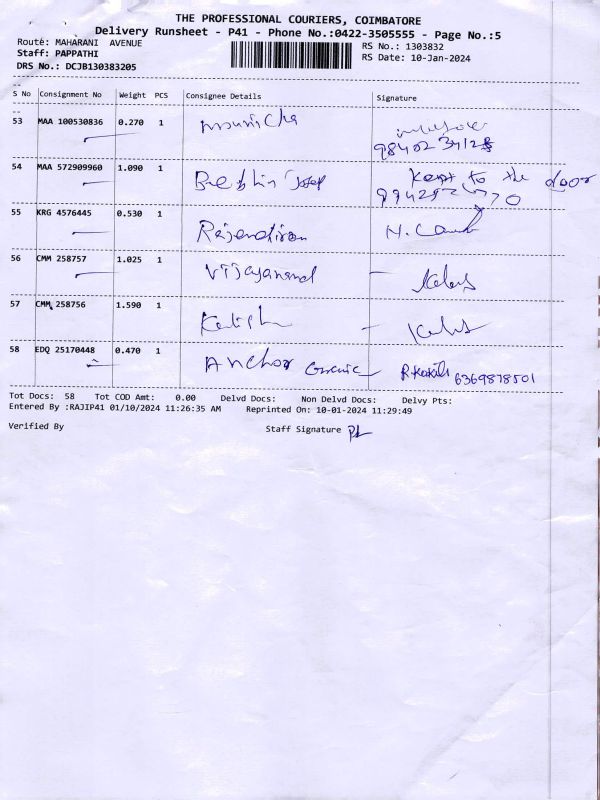 THE PROFESSIONAL COURIERS, COIMBATORE
Delivery Runsheet - P41 - Phone No.:0422-3505555 - Page No.:5
Route: MAHARANI AVENUE
RS No.: 1303832
Staff: PAPPATHI
RS Date: 10-Jan-2024
DRS No.: DCJB130383205
S No Consignment No Weight PCS Consignee Details Signature
53 MAA 100530836 0.270 1
54 MAA 572909960 1.090 1 kept to the door
55 KRG 4576445 0.530 1 Rajendiran
56 CMM 258757 1.025 1 Vijayanand
57 CMM 258756 1.590 1
58 EDQ 25170448 0.470 1 Anchor 6369878501
Tot Docs: 58 Tot COD Amt: 0.00 Delvd Docs: Non Delvd Docs: Delvy Pts:
Entered By :RAJIP41 01/10/2024 11:26:35 AM Reprinted On: 10-01-2024 11:29:49
Verified By Staff Signature